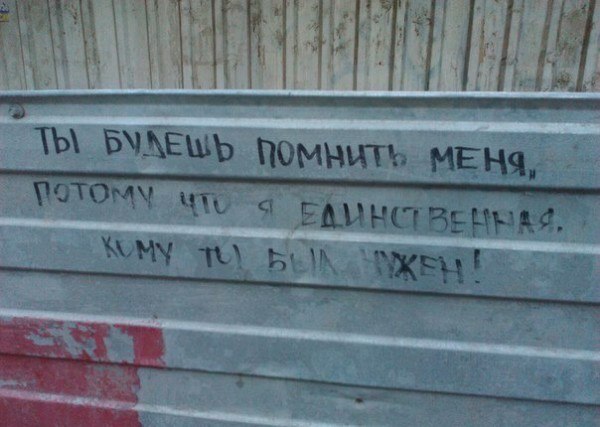 ТЫ БУДЕШЬ ПОМНИТЬ МЕНЯ,,
ПОТОМУ ЧТО Я ЕДИНСТВЕННАЯ.
КОМУ ТЫ БЫЛ НУЖЕН!